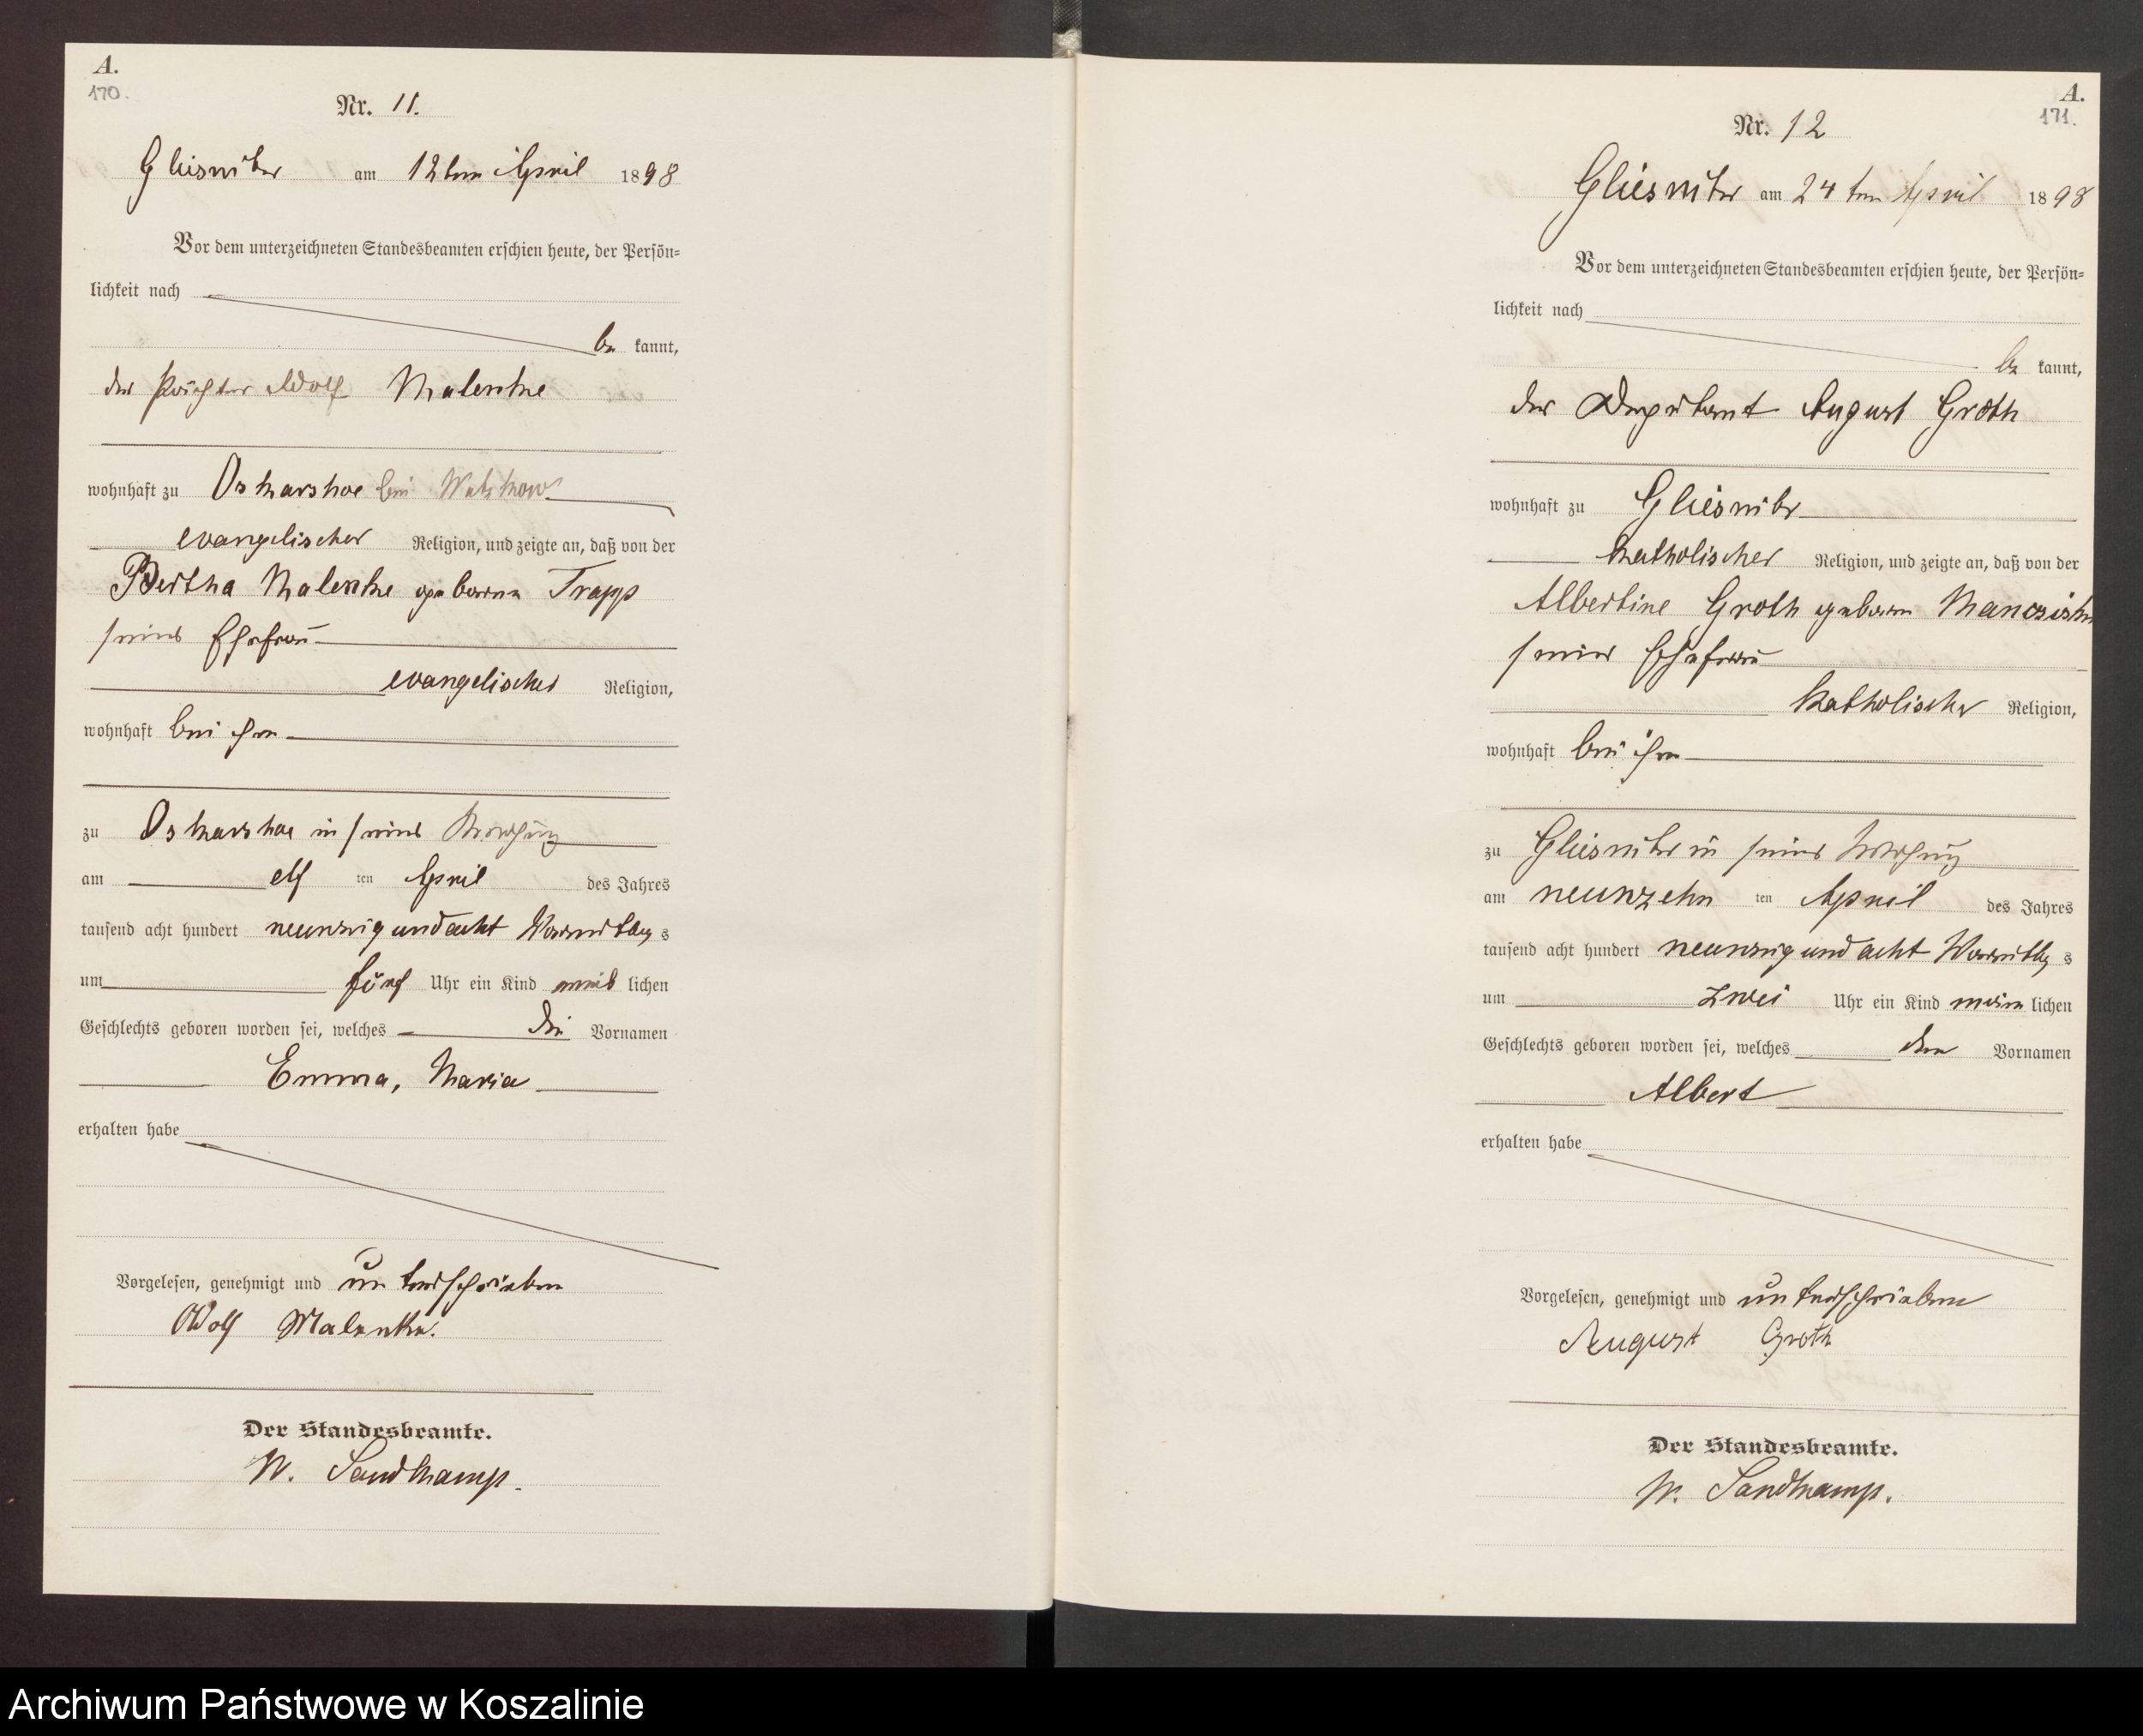 A.
170.
Nr. 11.
Gliesnitz am 12ten April 1898
Vor dem unterzeichneten Standesbeamten erschien heute, der Persön=
lichkeit nach
be kannt,
der Pächter Adolf Malenke
wohnhaft zu Oskarshoe bei
evangelischer Religion, und zeigte an, daß von der
Bertha Malenke geborene Trapp
seiner Ehefrau
evangelischer Religion,
wohnhaft bei ihm
zu Oskarshoe in seiner Wohnung
am elf ten April des Jahres
tausend acht hundert neunzig und acht Vormittags
um fünf Uhr ein Kind weib lichen
Geschlechts geboren worden sei, welches die Vornamen
Emma, Maria
erhalten habe
Vorgelesen, genehmigt und unterschrieben
Adolf Malenke.
Der Standesbeamte.
W. Sandkamp.
A.
171.
Nr. 12
Gliesnitz am 24ten April 1898
Vor dem unterzeichneten Standesbeamten erschien heute, der Persön=
lichkeit nach
be kannt,
der Deputant August Groth
wohnhaft zu Gliesnitz
katholischer Religion, und zeigte an, daß von der
Albertine Groth geboren
seiner Ehefrau
katholischer Religion,
wohnhaft bei ihm
zu Gliesnitz in seiner Wohnung
am neunzehn ten April des Jahres
tausend acht hundert neunzig und acht Vormittags
um zwei Uhr ein Kind männ lichen
Geschlechts geboren worden sei, welches den Vornamen
Albert
erhalten habe
Vorgelesen, genehmigt und unterschrieben
August Groth
Der Standesbeamte.
W. Sandkamp.
Archiwum Państwowe w Koszalinie